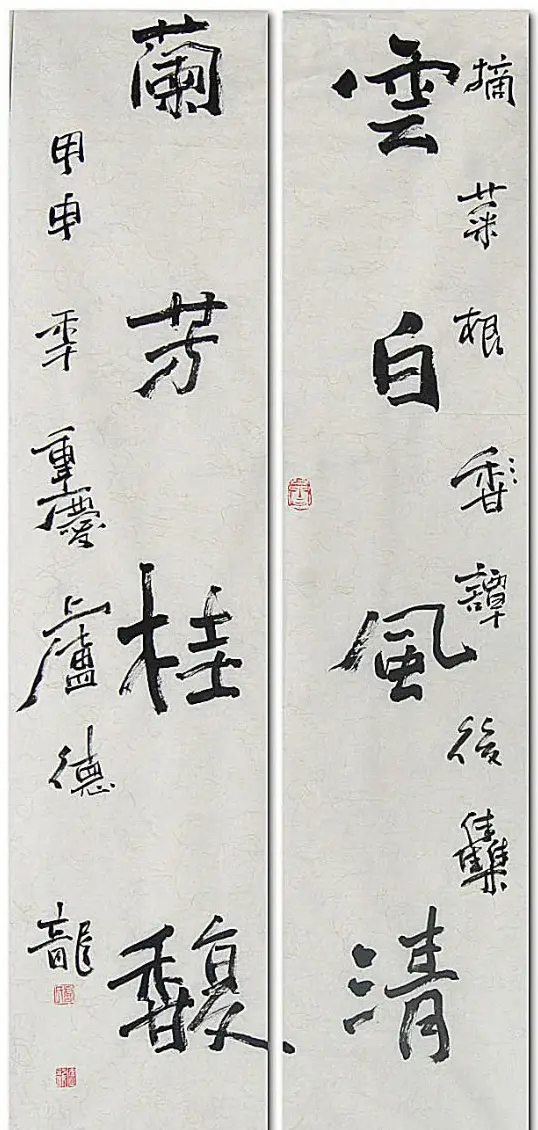 摘菜根香譚後雧
雲白風清
蘭芳桂馥
甲申秊重慶盧德龍